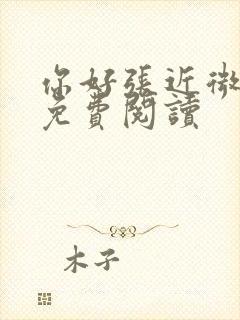 你好張近微
免費閱讀
木子